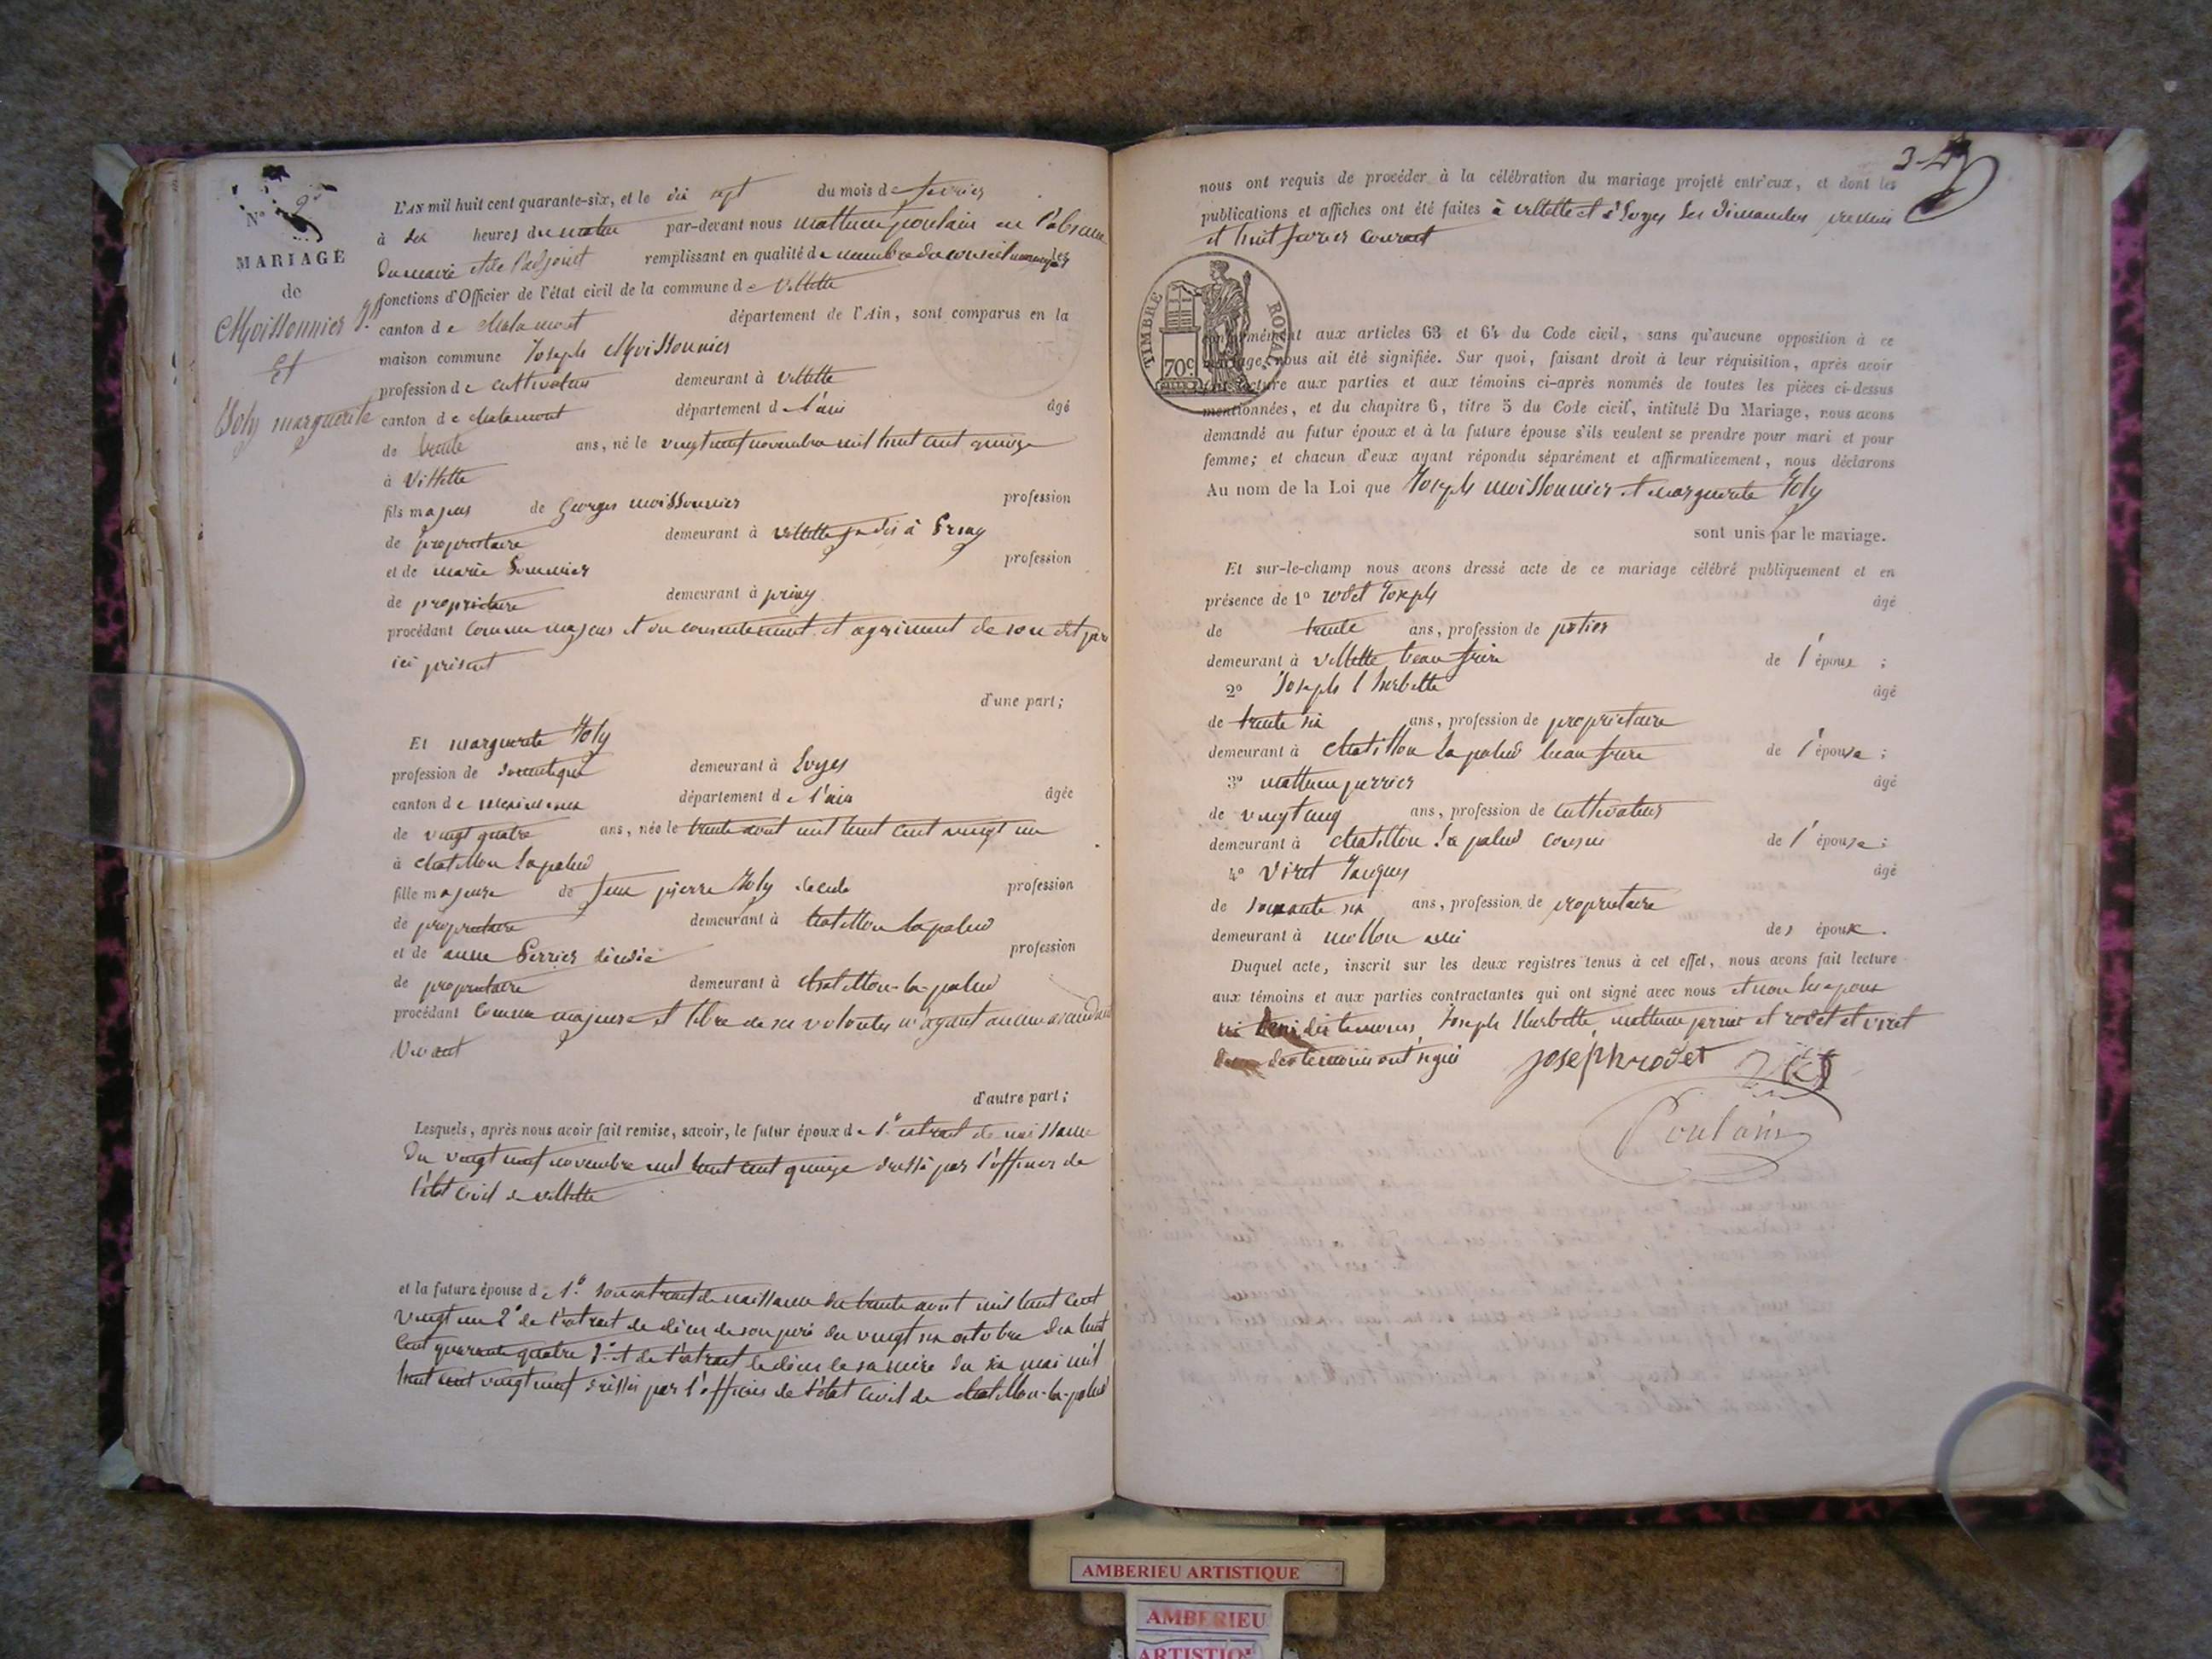 N° 2
MARIAGE
de
Moissonnier Jh
Et
Joly marguerite
L'AN mil huit cent quarante-six, et le dix sept du mois de fevrier
à dix heures du matin par-devant nous mathieu poulain en l'absence
du maire et de l'adjoint remplissant en qualité de membre du conseil municipal les
fonctions d'Officier de l'état civil de la commune de Villette
canton de chalamont département de l'Ain, sont comparus en la
maison commune Joseph Moissonnier
profession de cultivateur demeurant à villette
canton de chalamont département de l'ain âgé
de trente ans, né le vingt neuf novembre mil huit cent quinze
à Villette
fils majeur de georges moissonnier profession
de propriétaire demeurant à villette jadis à Priay
et de marie Sommier profession
de propriétaire demeurant à priay
procédant comme majeur et du consentement et agrement de son dit père
ici présent
d'une part;
Et marguerite Joly
profession de domestique demeurant à Loyes
canton de meximieux département de l'ain âgée
de vingt quatre ans, née le trente aout mil huit cent vingt un
à chatillon la palud
fille majeure de Jean pierre Joly décédé profession
de propriétaire demeurant à chatillon la palud
et de anne Perrier décédée profession
de propriétaire demeurant à chatillon-la-palud
procédant comme majeure et libre de ses volontés n'ayant aucun ascendant
vivant
d'autre part;
Lesquels, après nous avoir fait remise, savoir, le futur époux de 1° extrait de naissance
du vingt neuf novembre mil huit cent quinze dressé par l'officier de
l'état civil de villette
et la future épouse de 1° son extrait de naissance du trente aout mil huit cent
vingt un 2° de l'extrait de décès de son père du vingt six octobre dix huit
cent quarante quatre 3° et de l'extrait de décès de sa mère du six mai mil
huit cent vingt neuf dressés par l'officier de l'état civil de chatillon-la-palud
nous ont requis de procéder à la célébration du mariage projeté entr'eux, et dont les
publications et affiches ont été faites à villette et à Loyes les dimanches premier
et huit fevrier courant
TIMBRE ROYAL
70c
conformément aux articles 63 et 64 du Code civil, sans qu'aucune opposition à ce
mariage nous ait été signifiée. Sur quoi, faisant droit à leur réquisition, après avoir
fait lecture aux parties et aux témoins ci-après nommés de toutes les pièces ci-dessus
mentionnées, et du chapitre 6, titre 5 du Code civil, intitulé Du Mariage, nous avons
demandé au futur époux et à la future épouse s'ils veulent se prendre pour mari et pour
femme; et chacun d'eux ayant répondu séparément et affirmativement, nous déclarons
Au nom de la Loi que Joseph moissonnier et marguerite Joly
sont unis par le mariage.
Et sur-le-champ nous avons dressé acte de ce mariage célébré publiquement et en
présence de 1° rodet Joseph âgé
de trente ans, profession de potier
demeurant à villette beau frère de l'époux ;
2° Joseph l herbette âgé
de trente six ans, profession de propriétaire
demeurant à chatillon la palud beau frere de l'épouse ;
3° mathieu perrier âgé
de vingt cinq ans, profession de cultivateur
demeurant à chatillon la palud cousin de l'épouse ;
4° Viret Jacques âgé
de soixante six ans, profession de propriétaire
demeurant à mollon ami des époux.
Duquel acte, inscrit sur les deux registres tenus à cet effet, nous avons fait lecture
aux témoins et aux parties contractantes qui ont signé avec nous et non les époux
ni des temoins, Joseph lherbette, mathieu perrier et rodet et viret
des temoins ont signé Joseph rodet
Poulain
AMBERIEU ARTISTIQUE
AMBERIEU
ARTISTIQUE